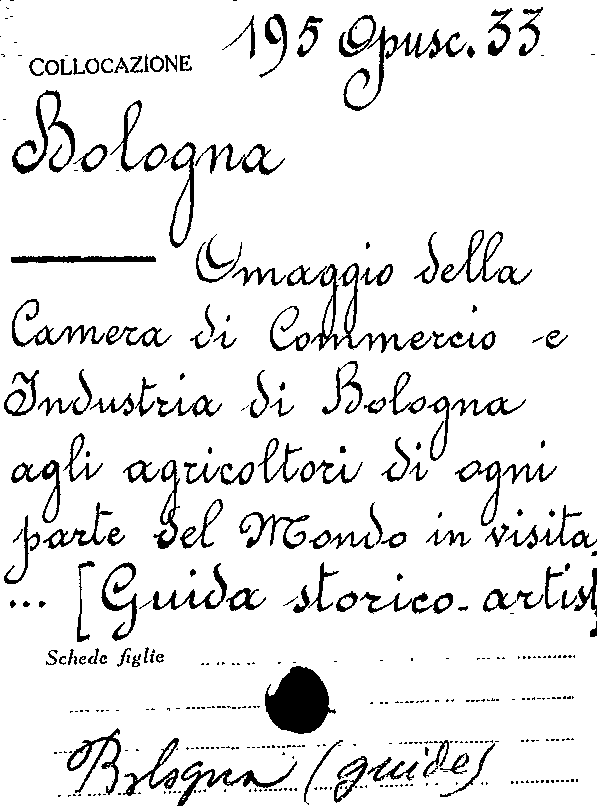 195 Opusc. 33
COLLOCAZIONE
Bologna
Omaggio della
Camera di Commercio e
Industria di Bologna
agli agricoltori di ogni
parte del Mondo in visita,
... [Guida storico-artist]
Schede figlie
Bologna (guide)